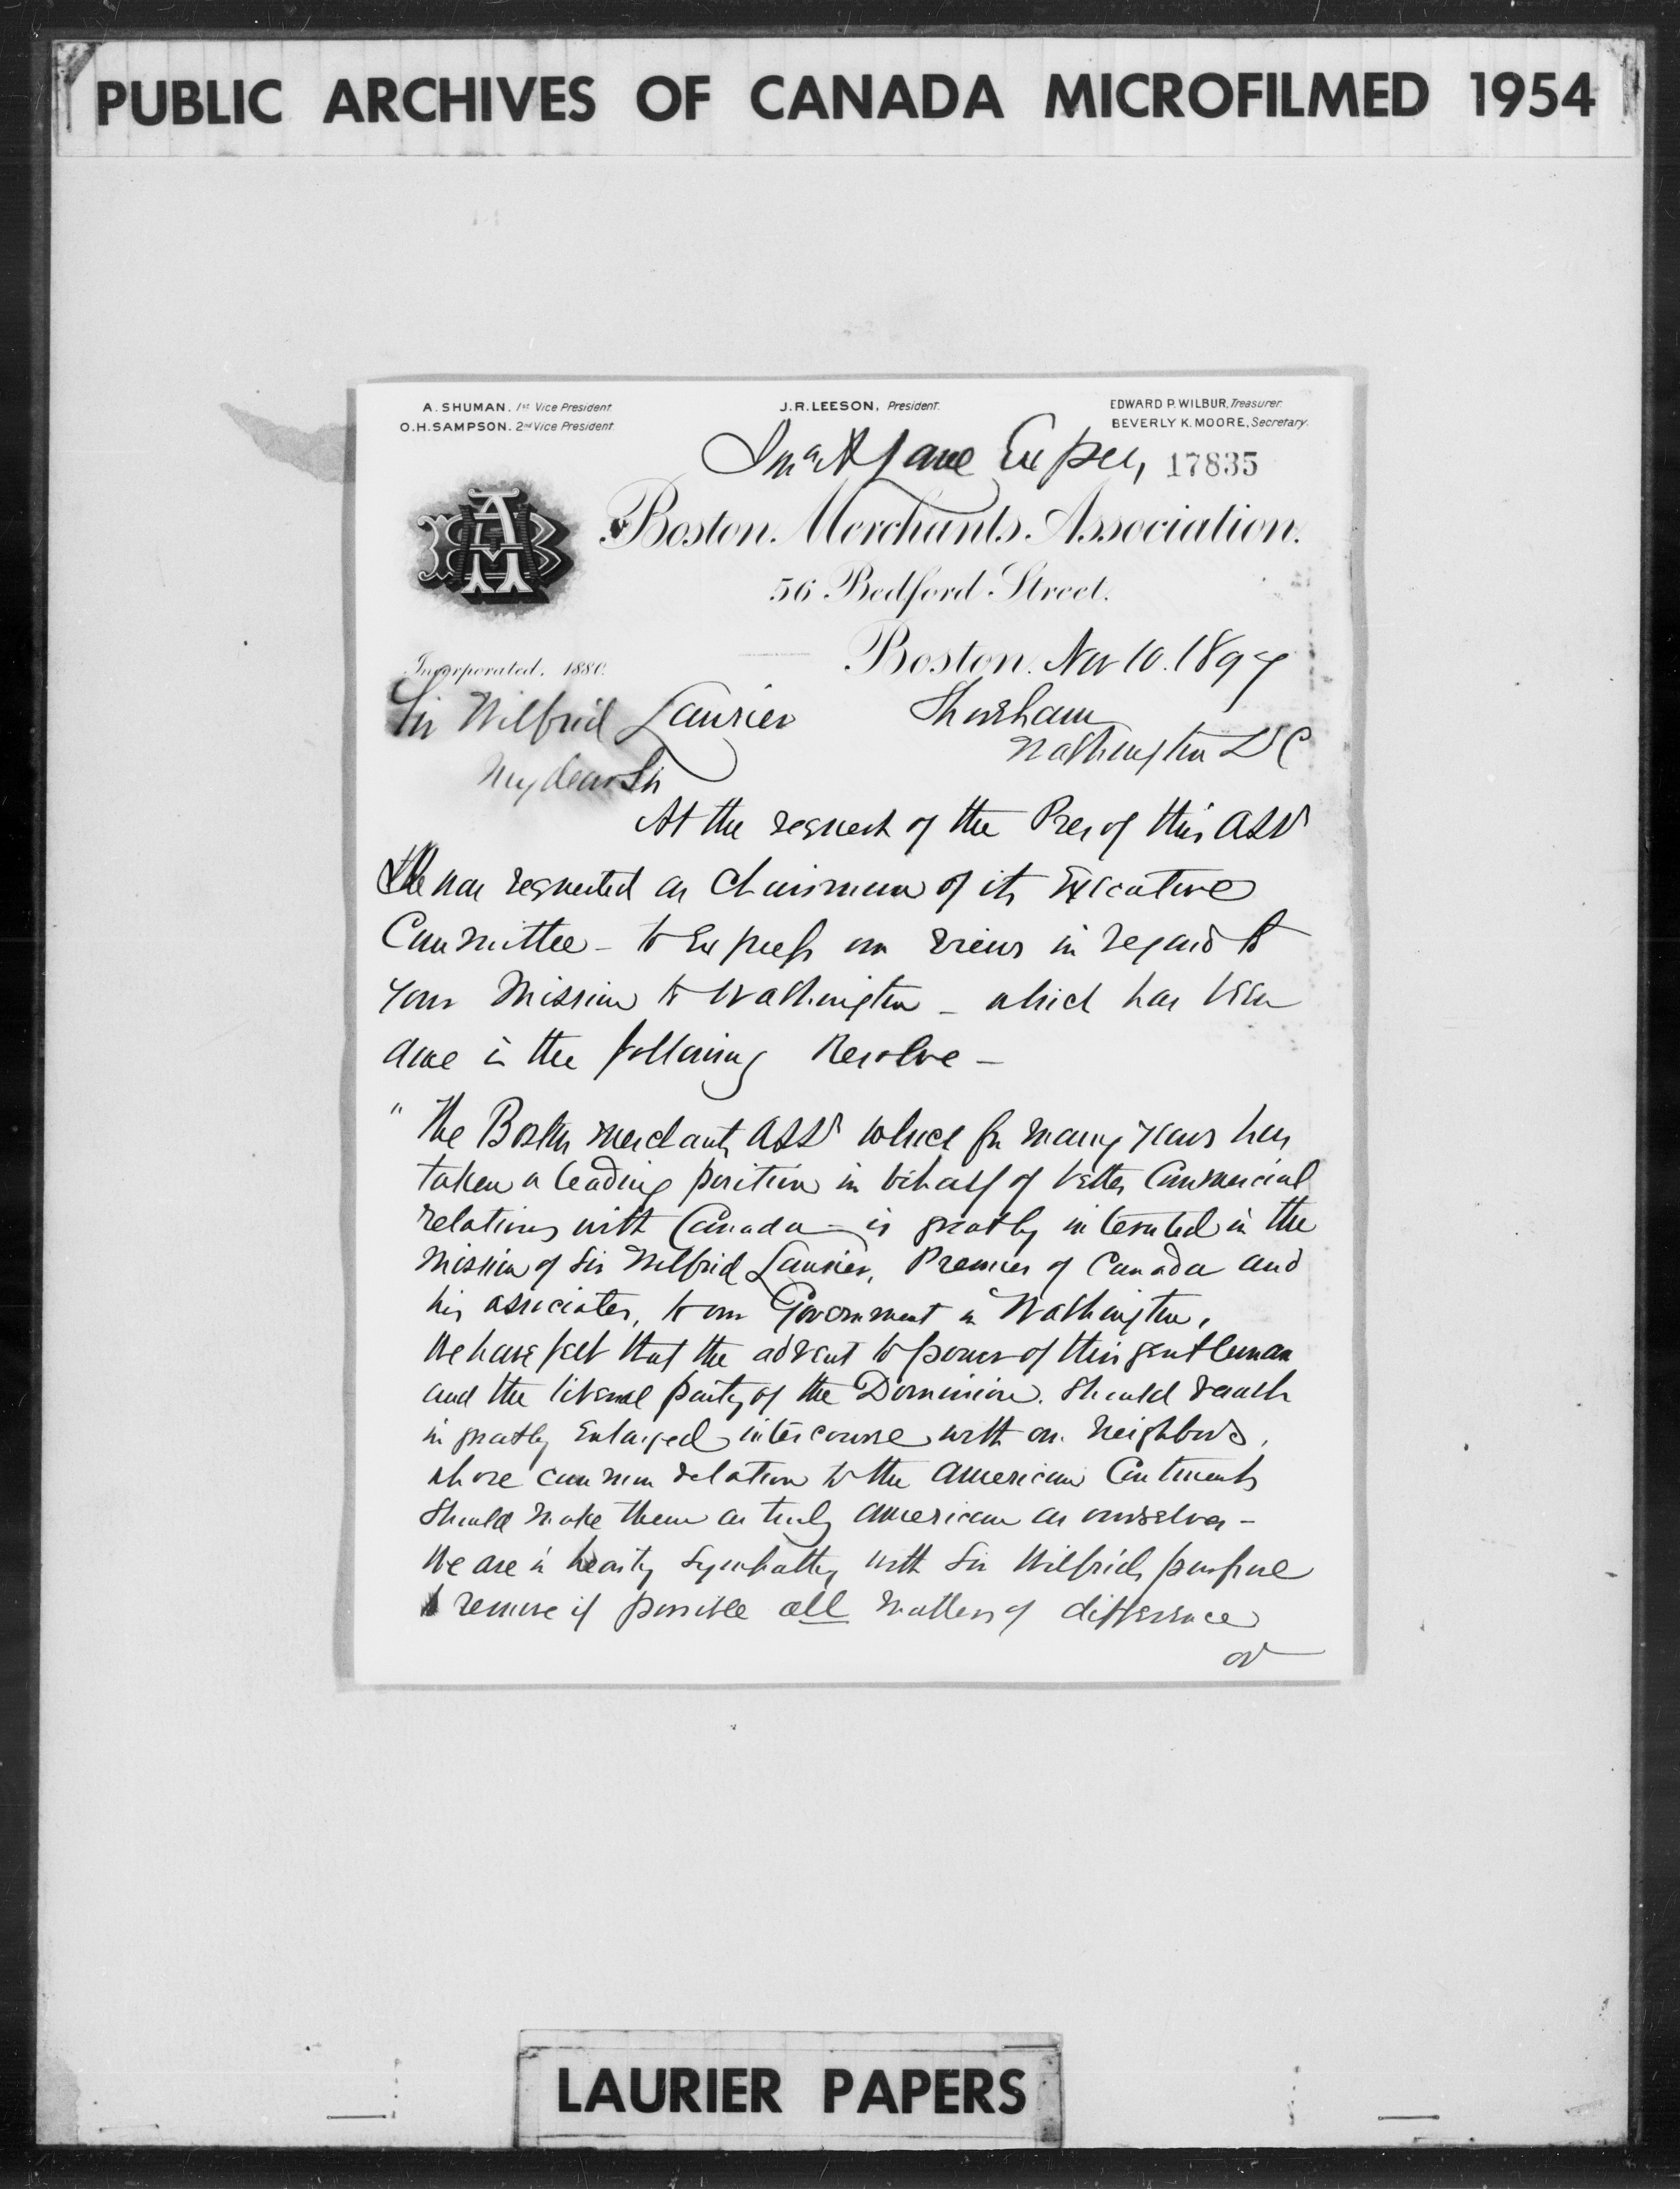 PUBLIC ARCHIVES OF CANADA MICROFILMED 1954
A. SHUMAN. 1st Vice President.
O.H. SAMPSON. 2nd Vice President.
J.R. LEESON, President.
EDWARD P. WILBUR, Treasurer.
BEVERLY K. MOORE, Secretary.
Lane 17835
Boston Merchants Association.
56 Bedford Street.
Incorporated. 1880.
Boston. Nov 10. 1897
Sir Wilfrid Laurier
Shoreham
Washington DC
My dear Sir
At the request of the Pres of this Assn
requested as Chairman of its Executive
Committee - to Express our views in regard to
your Mission to Washington - which has been
done in the following Resolve -
"The Boston Merchants Assn which for many years has
taken a leading position in behalf of better Commercial
relations with Canada - is greatly interested in the
Mission of Sir Wilfrid Laurier, Premier of Canada and
his associates, to our Government in Washington.
We have felt that the advent to power of this gentleman
and the liberal party of the Dominion. Should result
in greatly Enlarged intercourse with our Neighbors,
whose common relation to the American Continents
Should make them as truly American as ourselves -
We are in hearty Sympathy with Sir Wilfrids purpose
to remove if possible all matters of difference